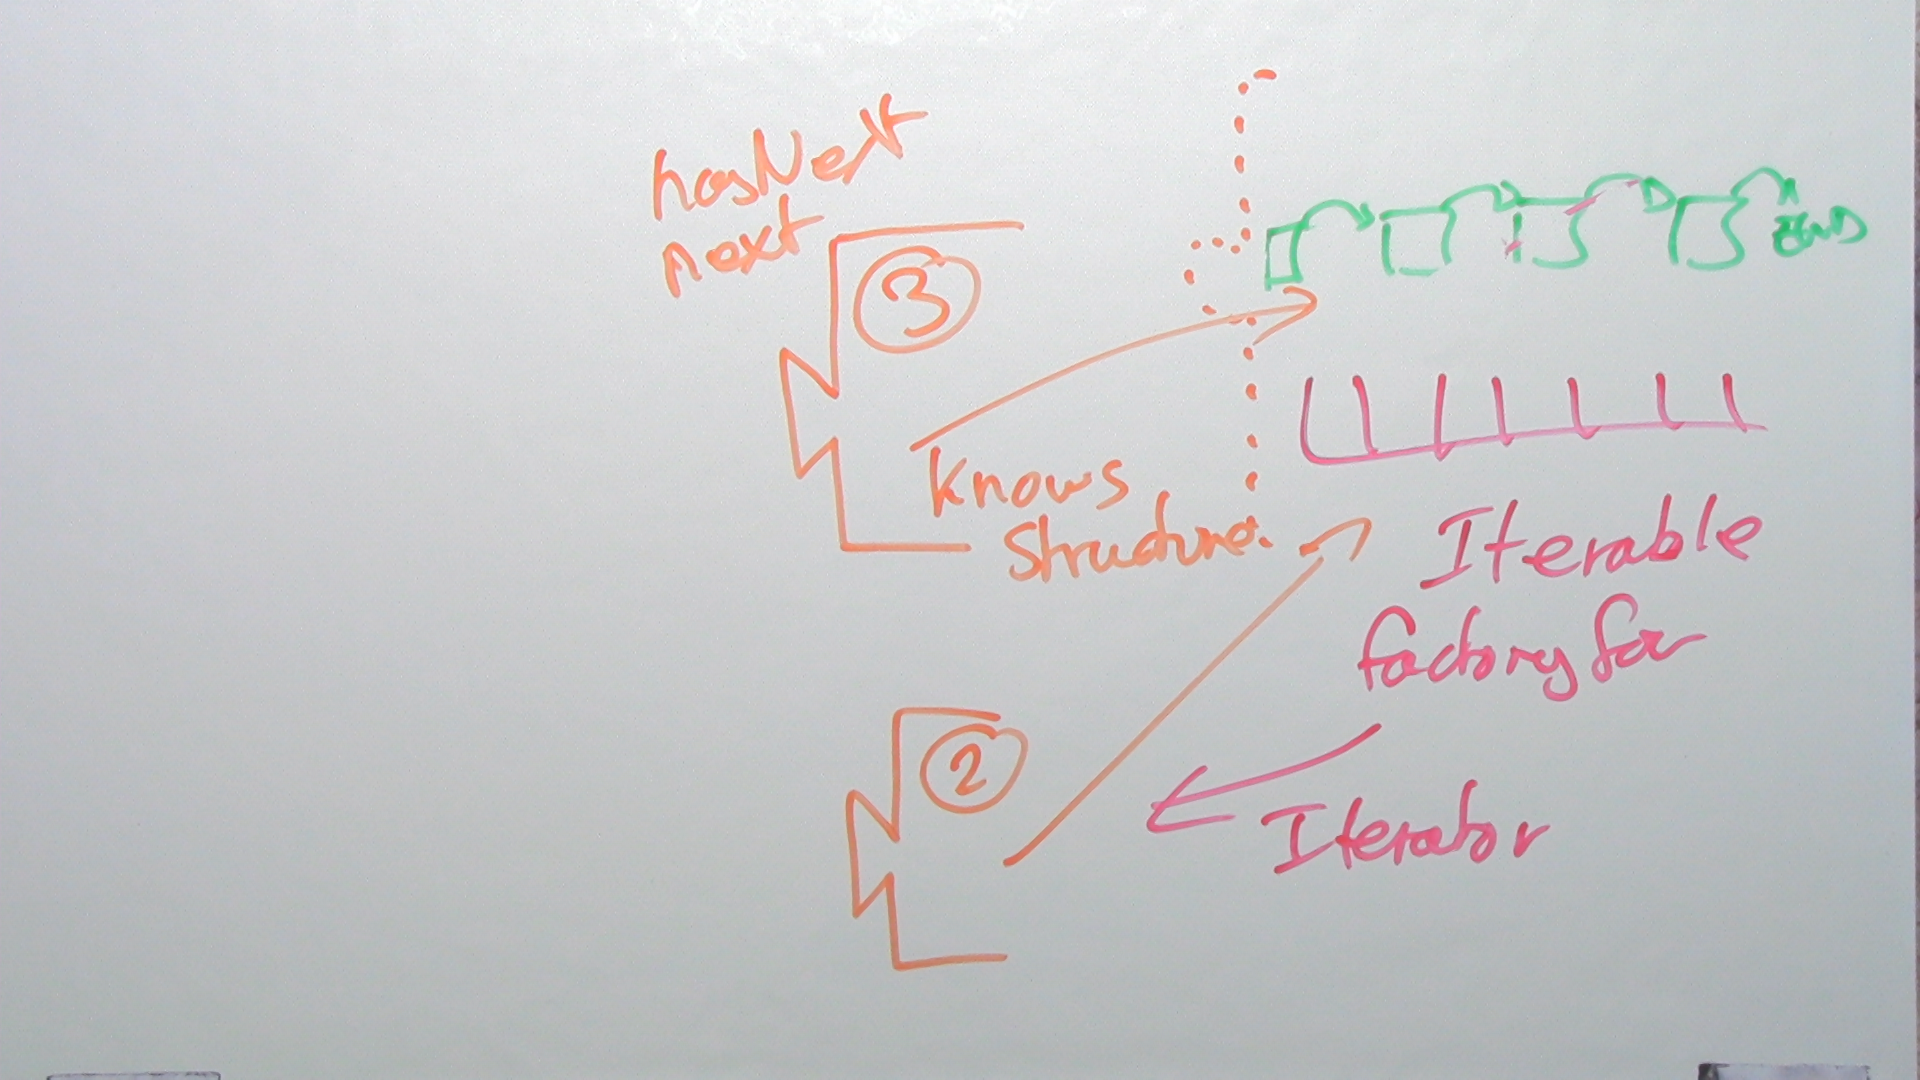 hasNext
next
3
END
Knows
Structure.
Iterable
factory for
2
Iterator